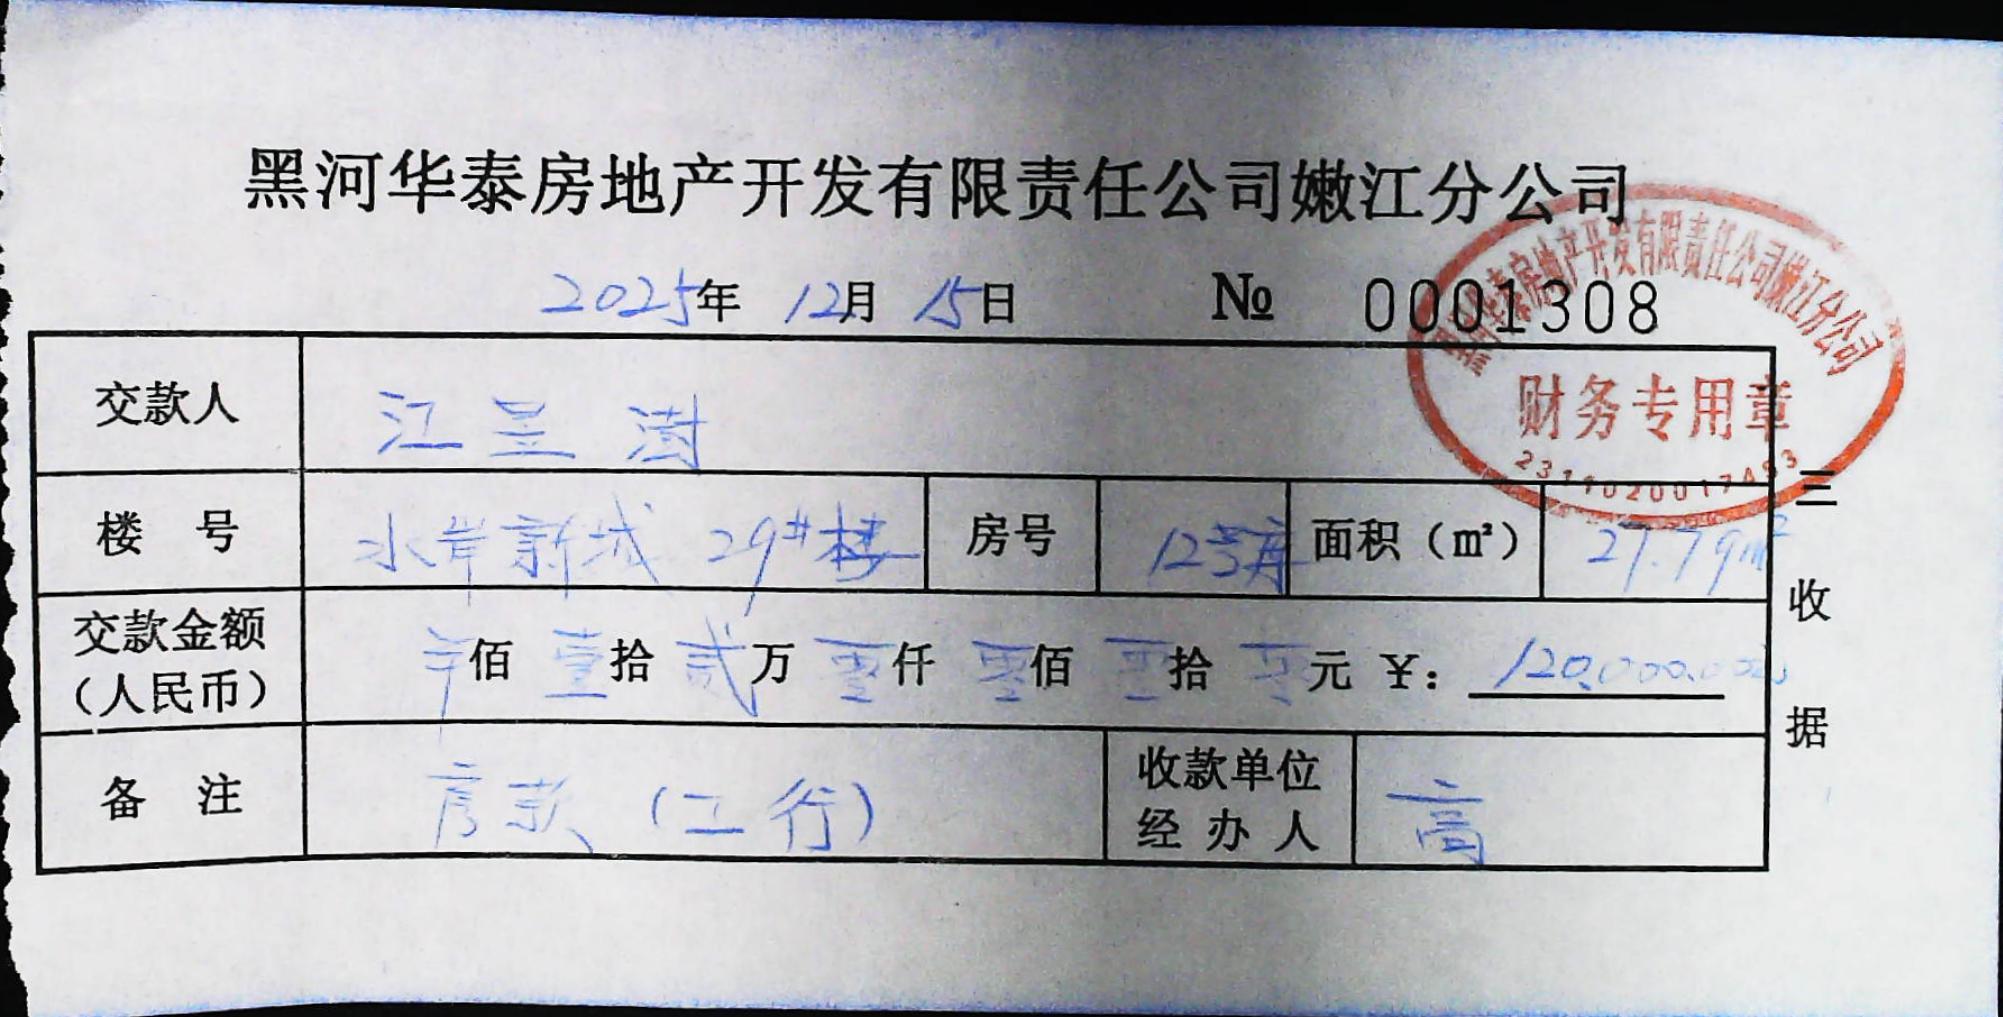 黑河华泰房地产开发有限责任公司嫩江分公司
2025年 12月 15日 № 0001308
黑河华泰房地产开发有限责任公司嫩江分公司
财务专用章
交款人 江昱澍
楼 号 水岸新城 29#楼 房号 12号库 面积（㎡） 27.79m²
交款金额（人民币） 佰 壹拾 贰万 零仟 零佰 零拾 零元 ￥：120,000.00
备 注 房款（工行） 收款单位经办人 高
三 收 据